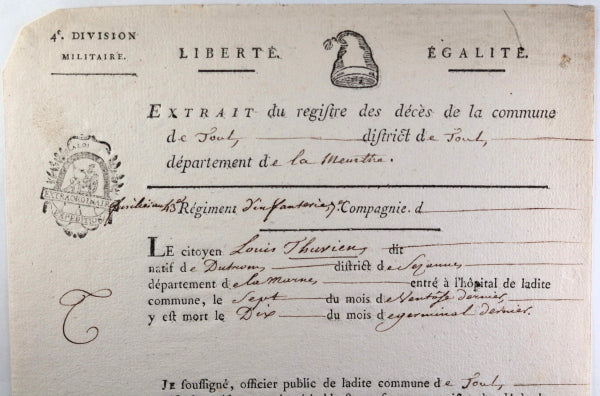 4e. DIVISION
MILITAIRE.
LIBERTÉ.
ÉGALITÉ.
EXTRAIT du regiſtre des décès de la commune
de Toul, diſtrict de Toul,
département de la Meurthe.
LA LOI
EXTRAORDINAIRE
EXPÉDITION
Fusilier au 43e Régiment d'infanterie, 7e Compagnie. d
LE citoyen Louis Thurien, dit
natif de diſtrict de Sezannes
département de la Marne entré à l'hôpital de ladite
commune, le Sept du mois de Ventôse dernier,
y eſt mort le Dix du mois de germinal dernier.
JE ſouſſigné, officier public de ladite commune de Toul,